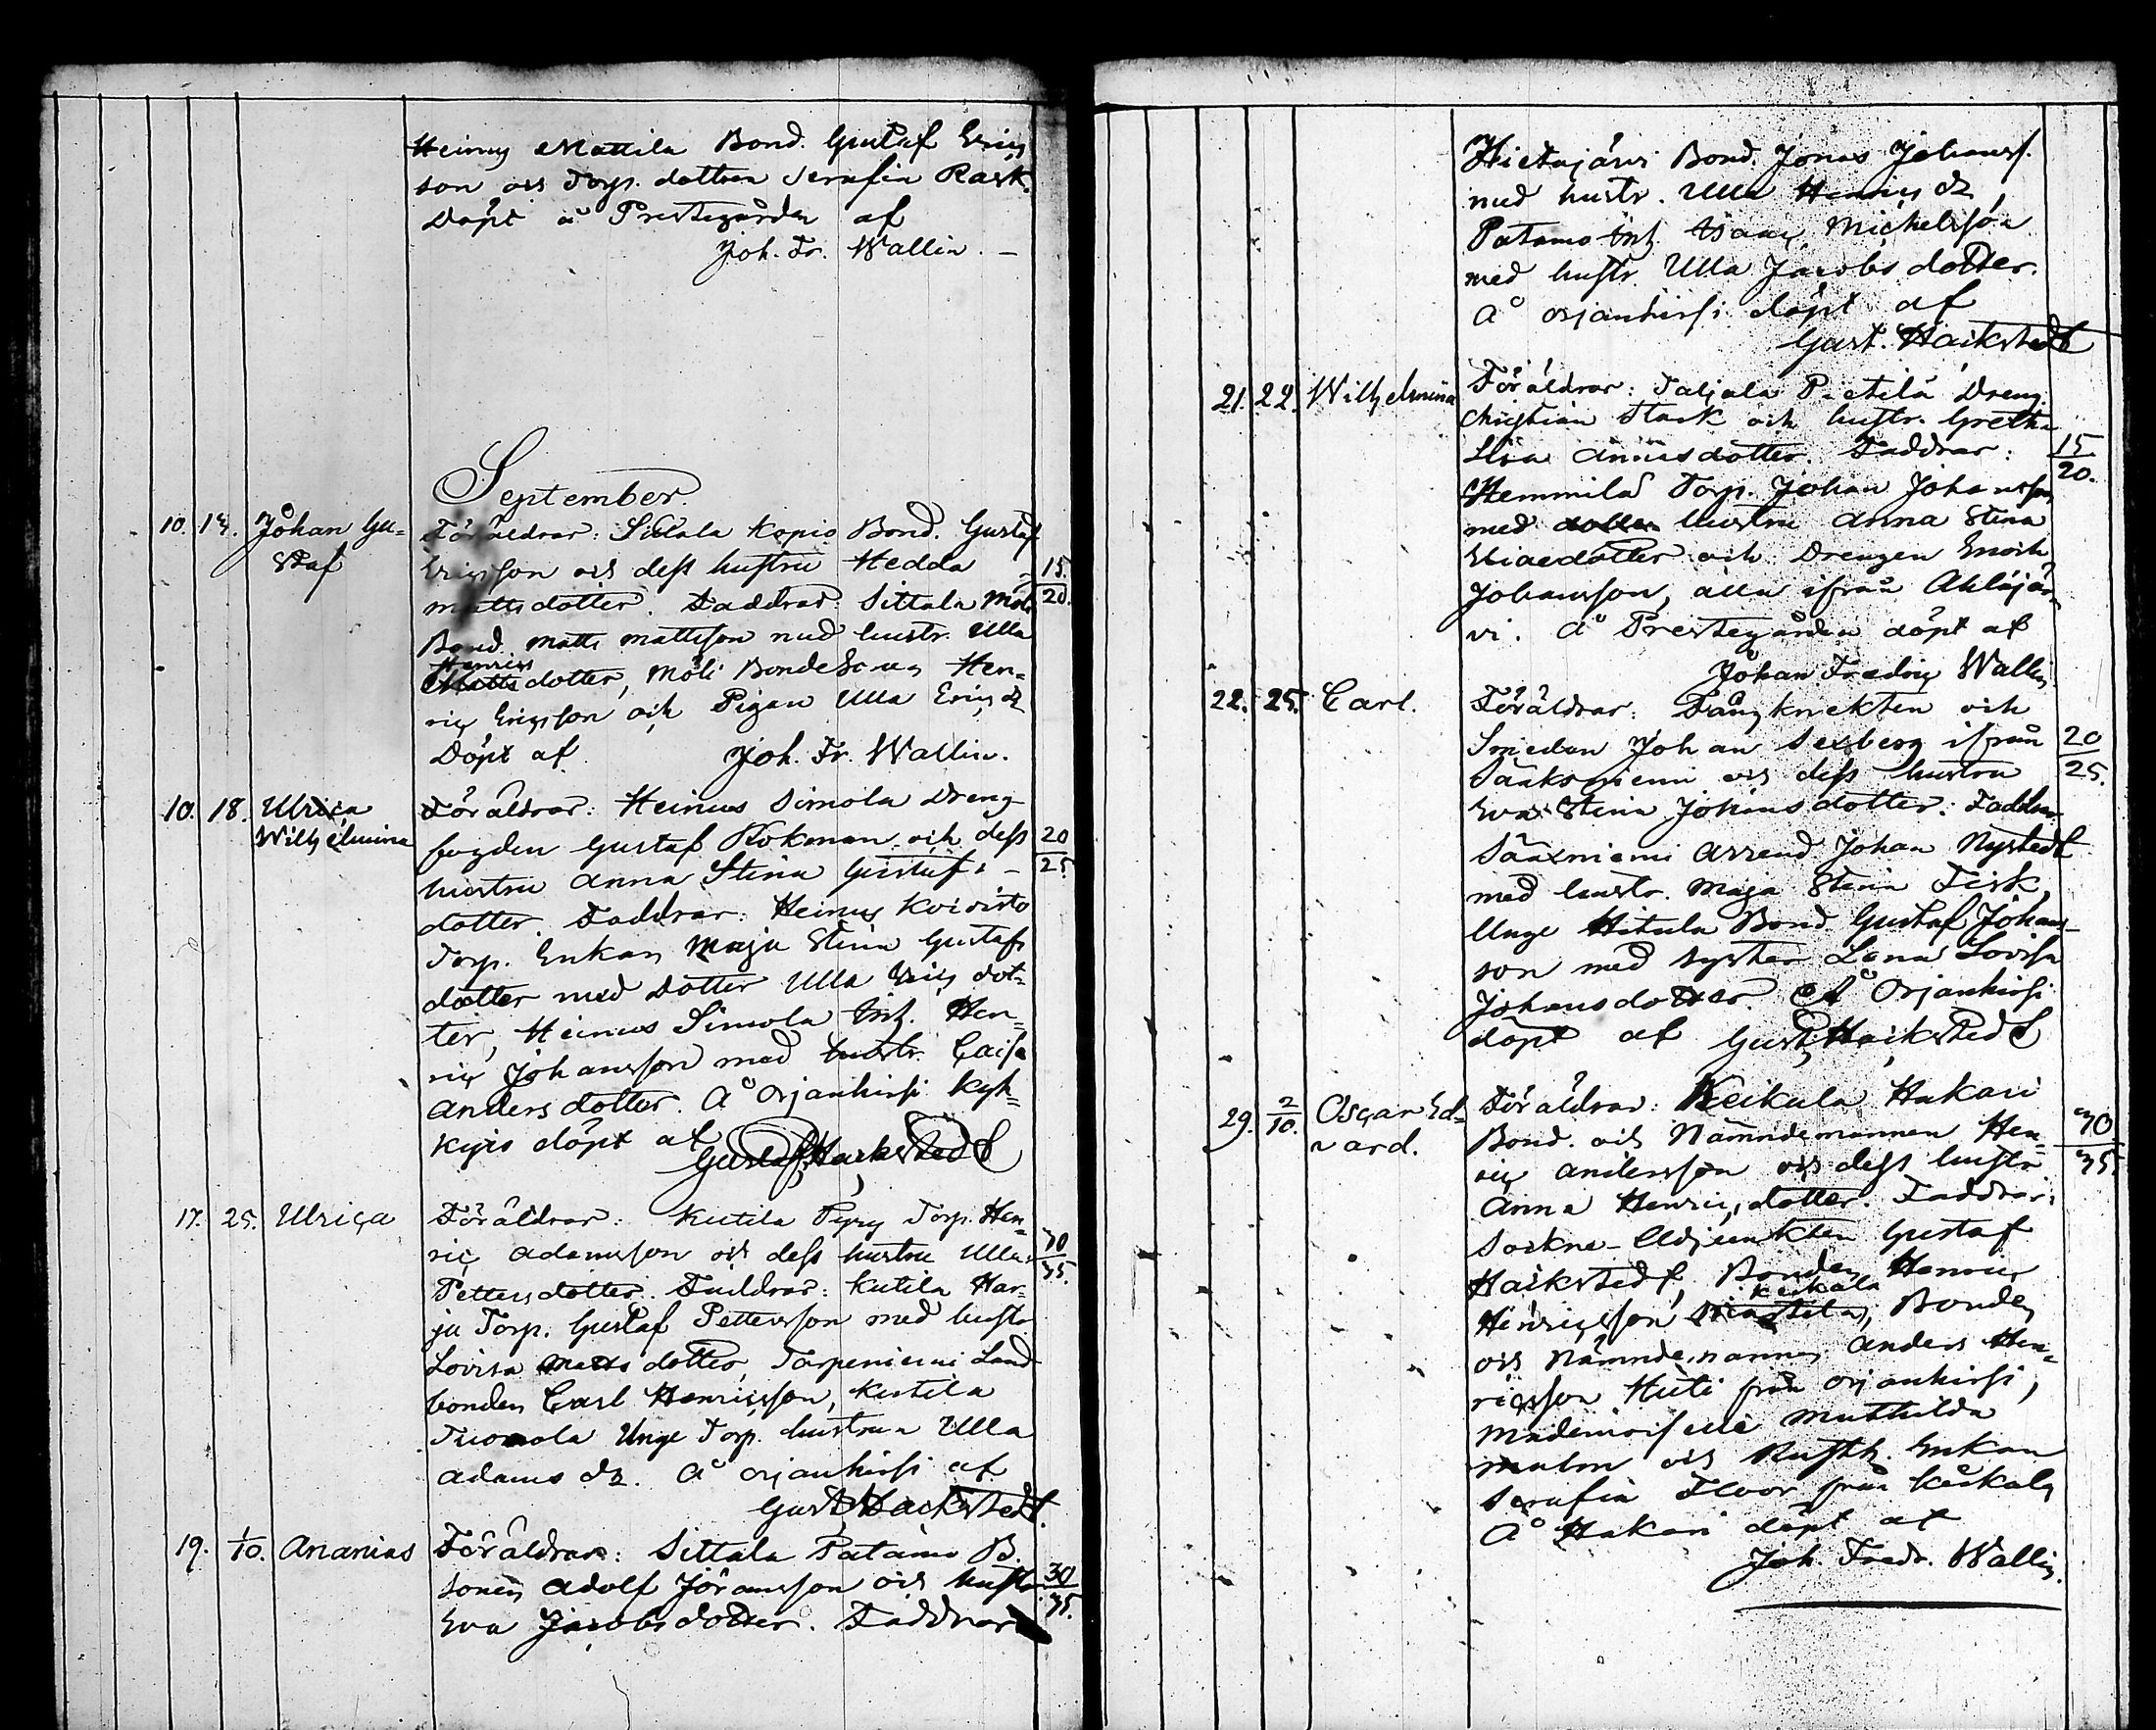 Heinus Mattila Bond. Gustaf Erics
son och Torp. dottren Serafin Rask.
Döpt å Prestegården af
Joh. Fr. Wallin. —
September.
10. 14. Johan Gu=
staf
Föräldrar: Sittala Kopio Bond. Gustaf
Ericsson och dess hustru Hedda 15.
Mattsdotter. Faddrar: Sittala Möli 20.
Bond. Matts Mattsson med hustr. Ulla
Henrics
Matts dotter, Möli Bondesonen Hen=
ric Ericsson och Pigan Ulla Erics dr
Döpt af Joh. Fr. Wallin.
10. 18. Ulrica
Wilhelmina
Föräldrar: Heinus Simola Dreng
fogden Gustaf Kokeman och dess 20
hustru Anna Stina Gustafs — 25
dotter. Faddrar: Heinus Koivisto
Torp. Enkan Maja Stina Gustafs
dotter med dotter Ulla Erics dot=
ter, Heinus Simola Inh. Hen=
ric Johansson med hustr. Caisa
Anders dotter. Å Orjanhirsi Kyh=
kyis döpt af
Gustaf Hackstedt
17. 25. Ulrica
Föräldrar: Kutila Pyry Torp. Hen=
ric Adamsson och dess hustru Ulla 30
Petters dotter. Faddrar: Kutila Har= 35.
ju Torp. Gustaf Pettersson med hustr
Lovisa Matts dotter, Tarpenniemi Land
bonden Carl Henricsson, Kutila
Tuomola Unge Torp. hustrun Ulla
Adams dr. Å Orjanhirsi af
Gust. Hackstedt.
19. 1/10. Ananias
Föräldrar: Sittala Patamo B.
sonen Adolf Jöransson och hustr 30
Eva Jacobs dotter. Faddrar 35.
Hietajärvi Bond. Jonas Johanss.
med hustr. Ulla Henrics dr,
Patamo Inh. Isaac Michelsson
med hustr. Ulla Jacobs dotter.
Å Orjanhirsi döpt af
Gust. Hackstedt
21. 22. Wilhelmina
Föräldrar: Taljala Pietilä Dreng.
Christian Stark och hustr. Gretha
Lisa Annusdotter. Faddrar: 15
Hemmilä Torp. Johan Johansson 20.
med hustru Anna Stina
Eliaedotter och Drengen Enoch
Johansson, alla ifrån Ahlajär=
vi. Å Prestegården döpt af
Johan Fredric Wallin.
22. 25. Carl.
Föräldrar: Fångknekten och
Smeden Johan Sexberg ifrån 20
Sääksniemi och dess hustru 25.
Eva Stina Johansdotter. Faddrar
Sääxniemi Arrend Johan Nystedt
med hustr. Maja Stina Fisk,
Unge Hitula Bond Gustaf Johans=
son med syster Lena Lovisa
Johansdotter Å Orjanhirsi
döpt af Gust. Hackstedt
29. 2/10. Oscar Ed=
vard.
Föräldrar: Keikala Hakari
Bond. och Nämndemannen Hen= 30
ric Andersson och dess hustr 35.
Anna Henrics dotter. Faddrar:
Sockne-Adjunkten Gustaf
Hackstedt, Bonden Henric
Keikala
Henricsson, Bonden
och Nämndemannen Anders Hen=
ricsson Huti från Orjanhirsi,
Mademoiselle Mathilda
Malm och Rusth. Enkan
Serafin Floor från Keikala
Å Hakari döpt af
Joh. Fredr. Wallin.